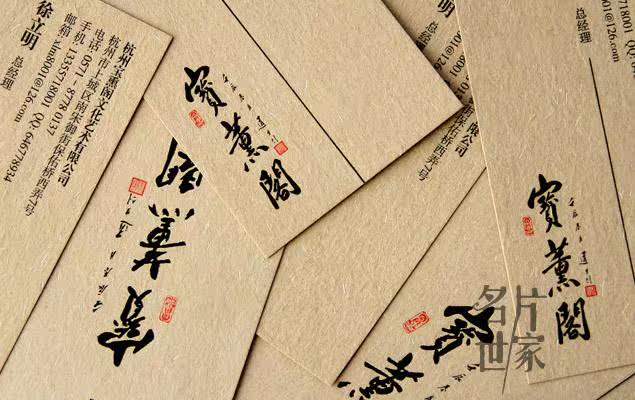 杭州宝薰阁文化艺术有限公司
杭州市上城区南宋御街保佑桥西弄1号
电话 0571-8778 0137
手机 13355718001 QQ: 646778934
邮箱 xlm8001@126.com
徐立明 总经理
寶薰閣
寶薰閣
718001 QQ
8001@126.com
总经理
寶薰閣
寶薰
名片世家